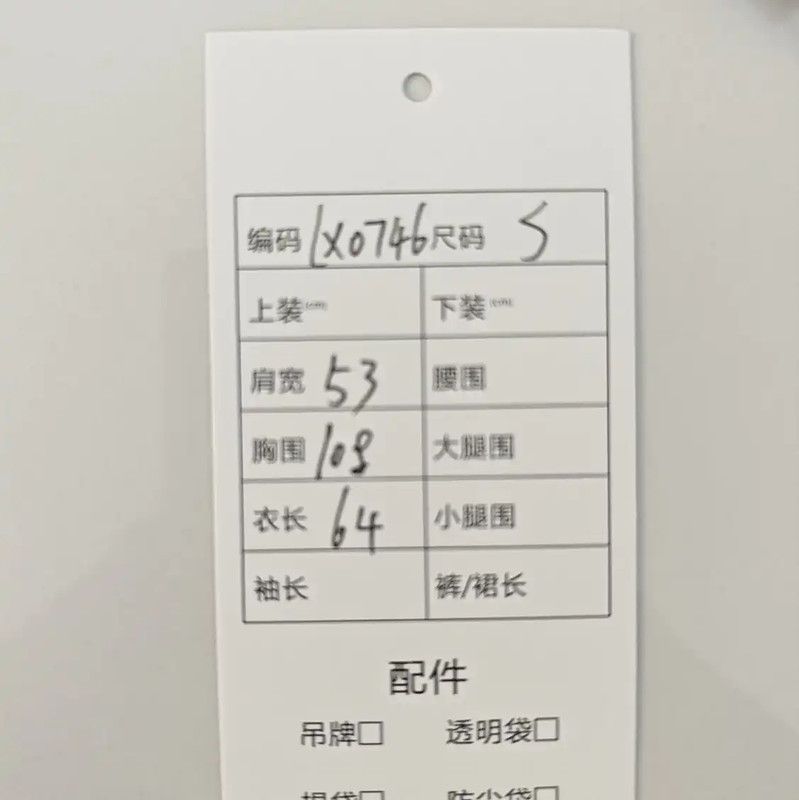 编码 LX0746 尺码 S
上装(cm) 下装(cm)
肩宽 53 腰围
胸围 108 大腿围
衣长 64 小腿围
袖长 裤/裙长
配件
吊牌□ 透明袋□
提袋□ 防尘袋□